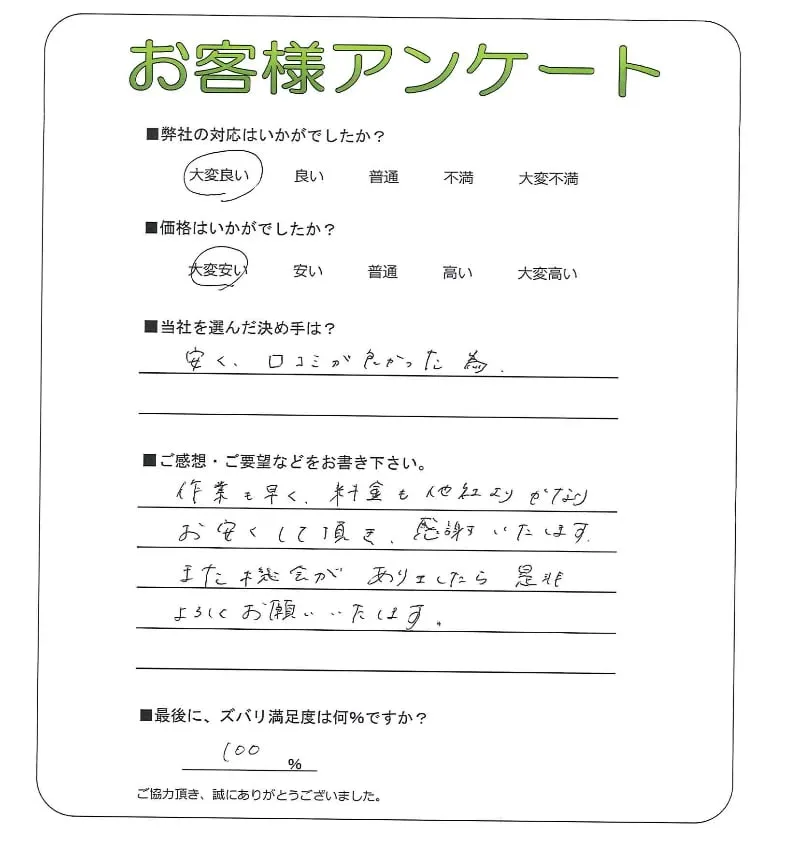 お客様アンケート
■弊社の対応はいかがでしたか？
大変良い 良い 普通 不満 大変不満
■価格はいかがでしたか？
大変安い 安い 普通 高い 大変高い
■当社を選んだ決め手は？
安く、口コミが良かった為.
■ご感想・ご要望などをお書き下さい。
作業も早く、料金も他社よりかなり
お安くして頂き、感謝いたします.
また機会がありましたら是非
よろしくお願いいたします。
■最後に、ズバリ満足度は何%ですか？
100 %
ご協力頂き、誠にありがとうございました。